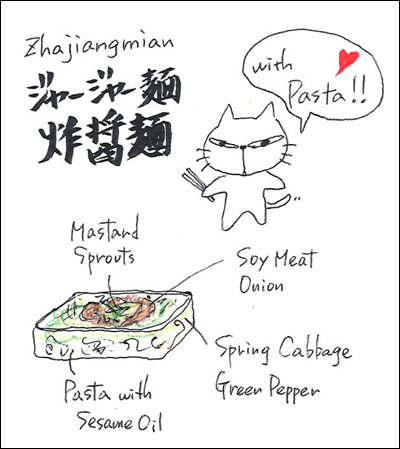 Zhajiangmian
ジャージャー麺
炸醤麺
with
Pasta!!
Mastard
Sprouts
Soy Meat
Onion
Spring Cabbage
Green Pepper
Pasta with
Sesame Oil